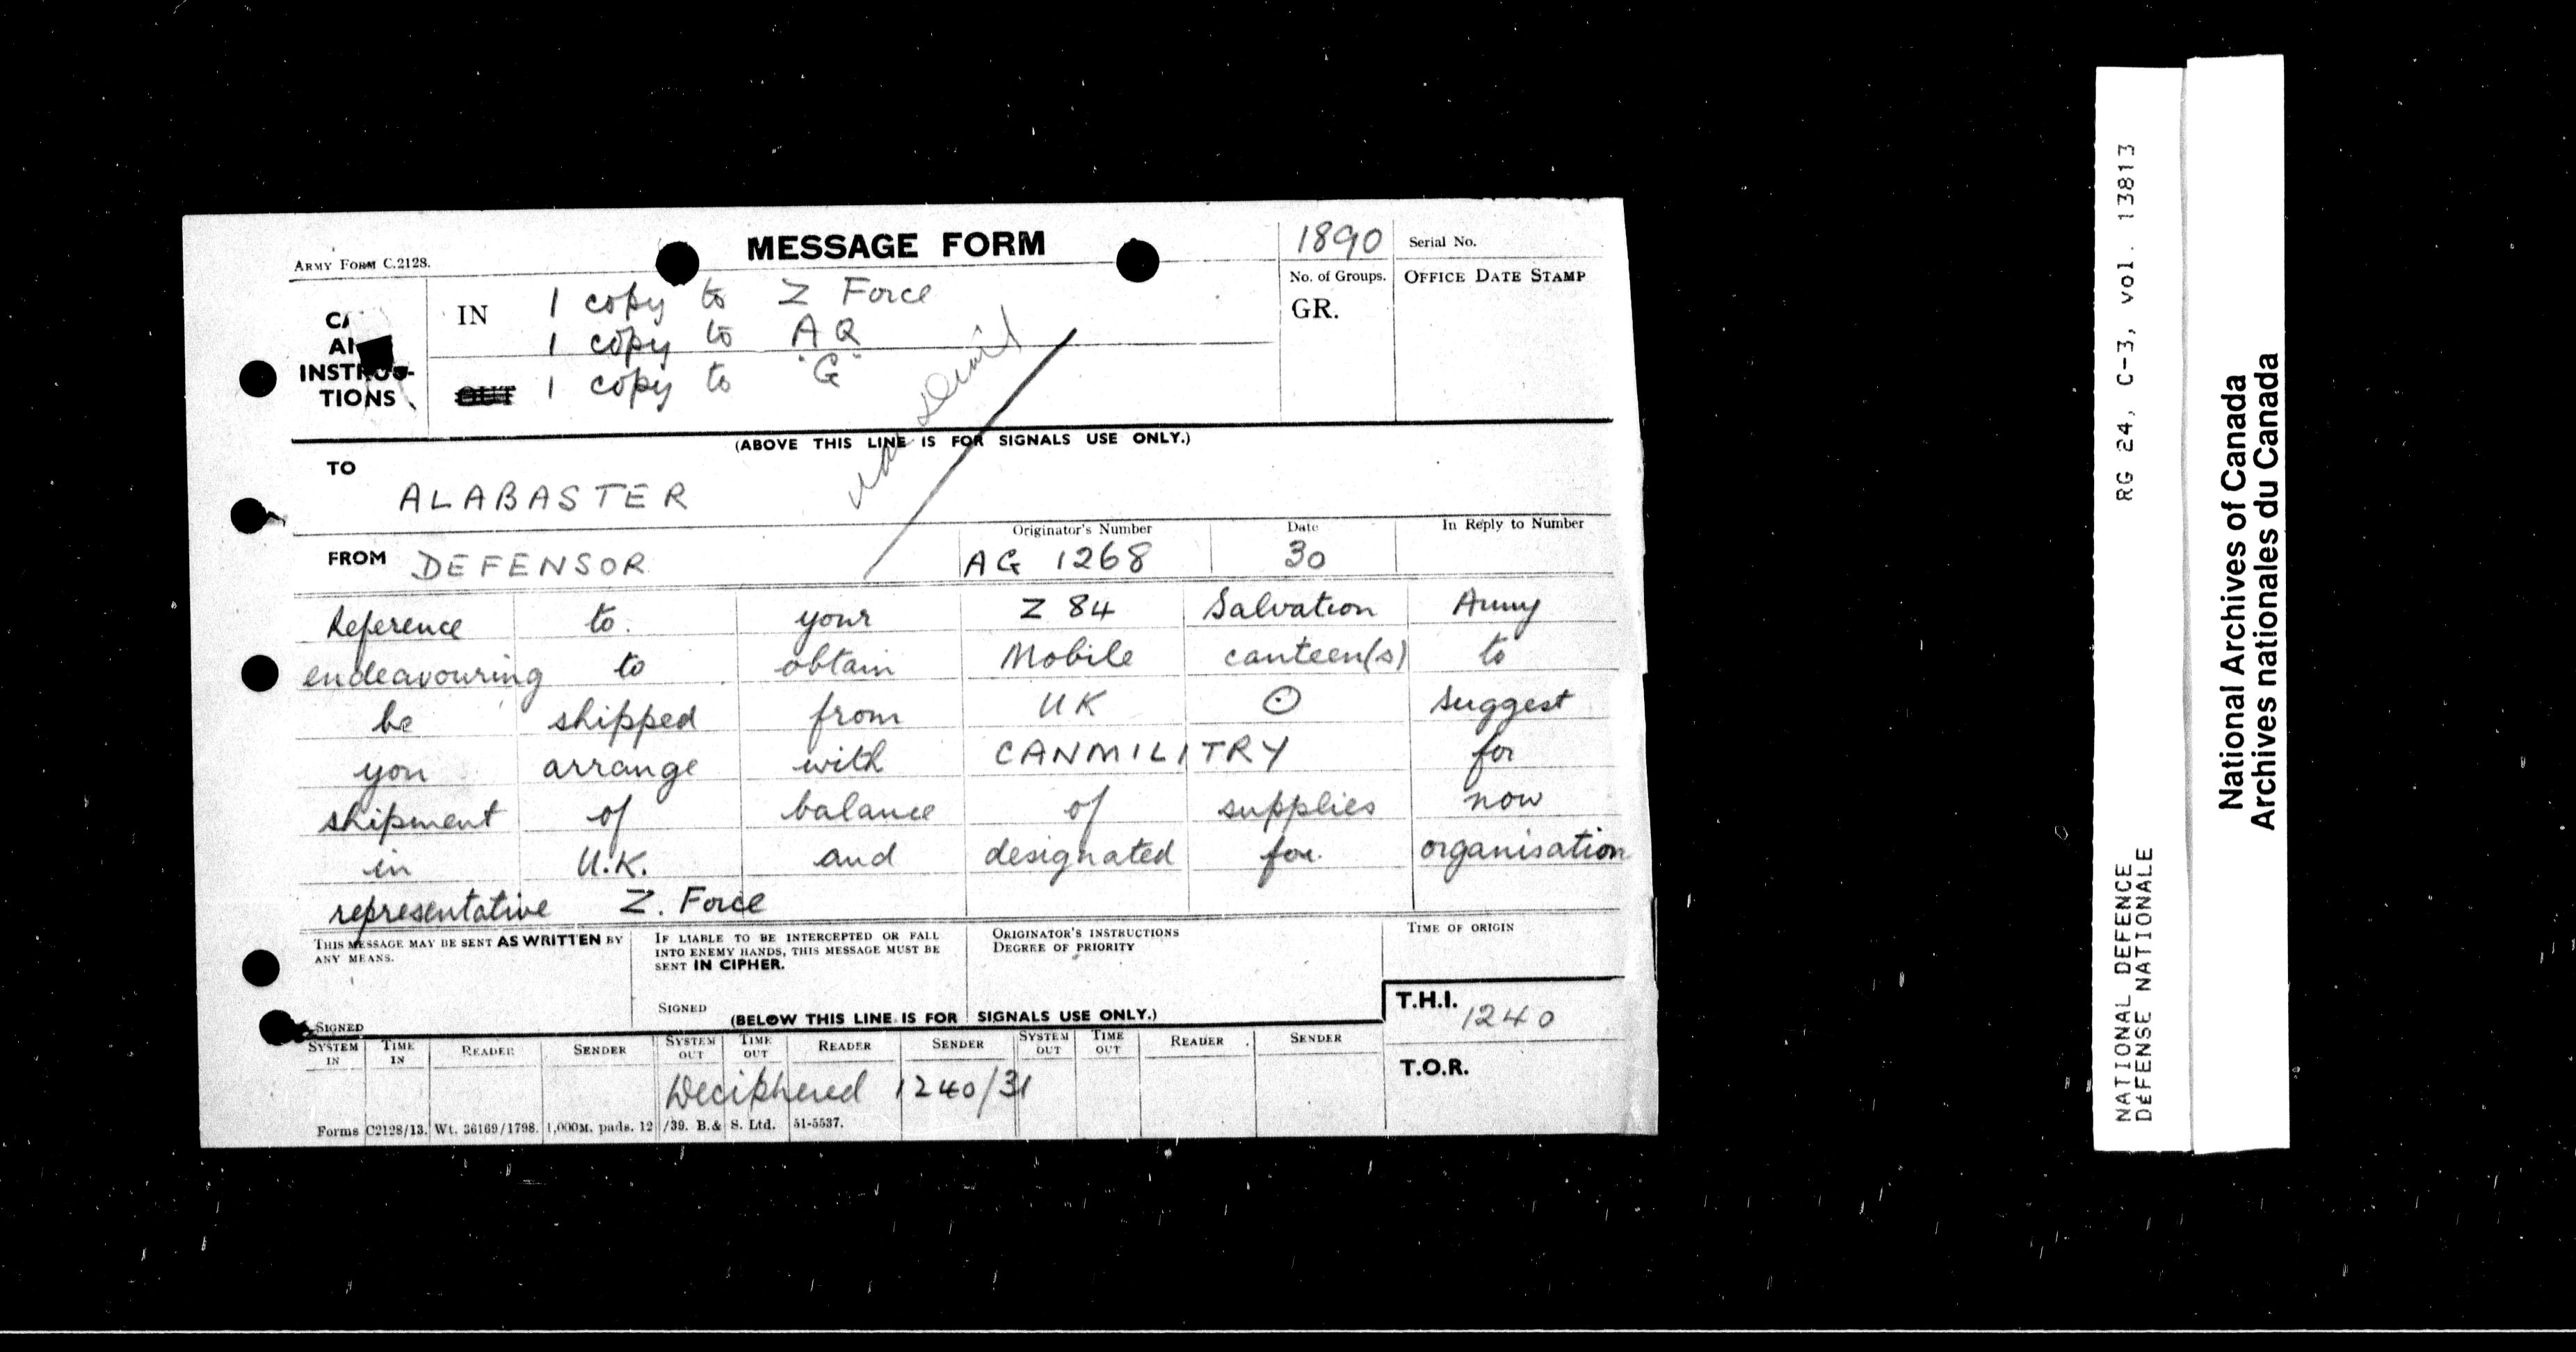 MESSAGE FORM
1890
Serial No.
ARMY FORM C.2128.
No. of Groups.
OFFICE DATE STAMP
GR.
INSTRUC-
TIONS
IN
1 copy to Z Force
1 copy to AQ
OUT 1 copy to "G"
(ABOVE THIS LINE IS FOR SIGNALS USE ONLY.)
TO
ALABASTER
Originator's Number
Date
In Reply to Number
FROM DEFENSOR AG 1268 30
Reference to your Z 84 Salvation Army
endeavouring to obtain Mobile canteen(s) to
be shipped from UK ⊙ suggest
you arrange with CANMILITRY for
shipment of balance of supplies now
in U.K. and designated for organisation
representative Z. Force
THIS MESSAGE MAY BE SENT AS WRITTEN BY
ANY MEANS.
SIGNED
IF LIABLE TO BE INTERCEPTED OR FALL
INTO ENEMY HANDS, THIS MESSAGE MUST BE
SENT IN CIPHER.
SIGNED
ORIGINATOR'S INSTRUCTIONS
DEGREE OF PRIORITY
TIME OF ORIGIN
(BELOW THIS LINE IS FOR SIGNALS USE ONLY.)
T.H.I. 1240
SYSTEM IN TIME IN READER SENDER SYSTEM OUT TIME OUT READER SENDER SYSTEM OUT TIME OUT READER SENDER
T.O.R.
Deciphered 1240/31
Forms C2128/13. Wt. 36169/1798. 1,000M. pads. 12/39. B.& S. Ltd. 51-5537.
RG 24, C-3, vol. 13813
NATIONAL DEFENCE
DÉFENSE NATIONALE
National Archives of Canada
Archives nationales du Canada